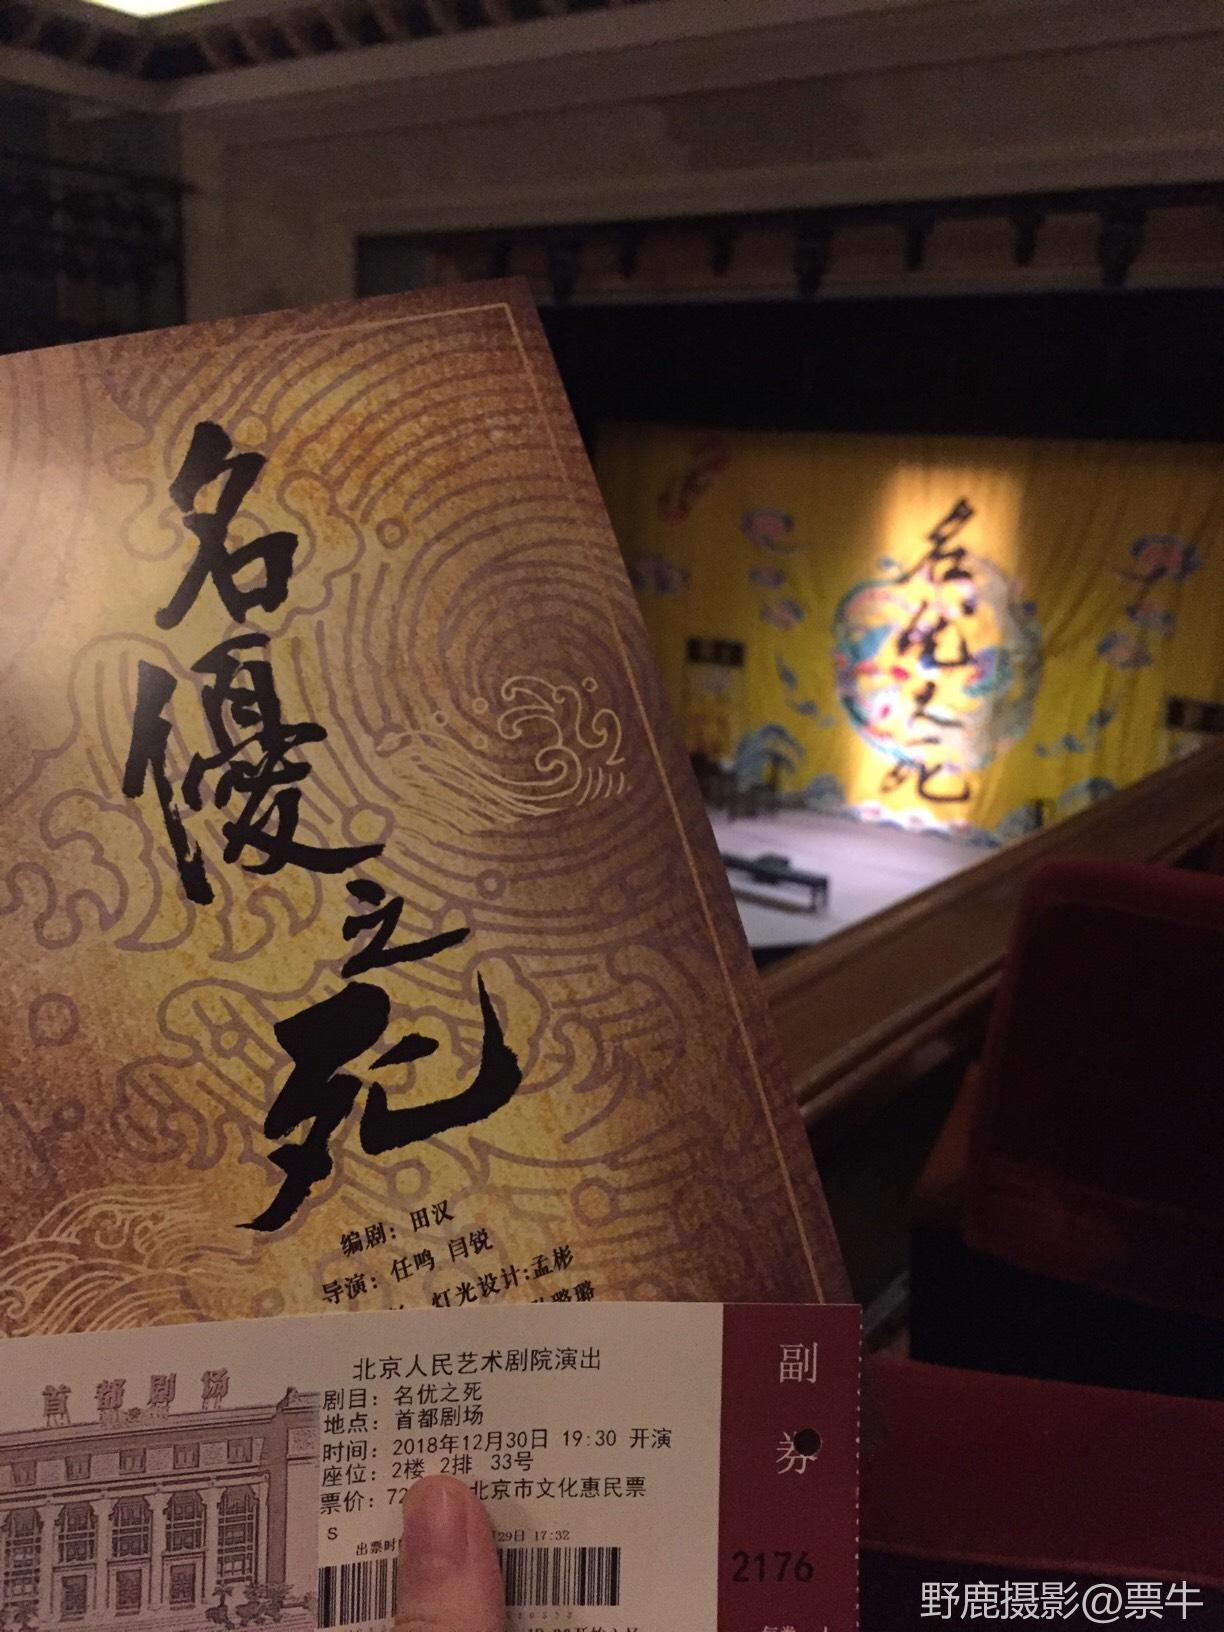 名優之死
名优之死
编剧：田汉
导演：任鸣 闫锐
灯光设计:孟彬
璐璐
首都剧场
北京人民艺术剧院演出
剧目：名优之死
地点：首都剧场
时间：2018年12月30日 19:30 开演
座位：2楼 2排 33号
票价：72 北京市文化惠民票
S
出票时 29日 17:32
副券
2176
野鹿摄影@票牛